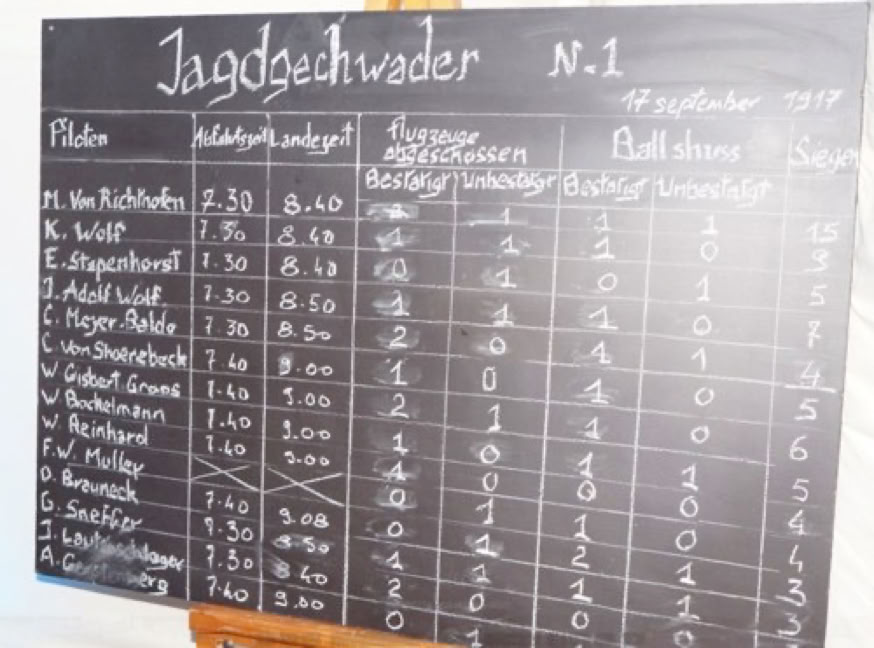 Jagdgechwader N.1
17 september 1917
Piloten Abfahrtszeit Landezeit Flugzeuge abgeschossen Ballshuss Siegen
Bestätigt Unbestätigt Bestätigt Unbestätigt
M. Von Richthofen 7.30 8.40 1 1 1 15
K. Wolf 7.30 8.40 1 1 1 0 9
E. Stapenhorst 7.30 8.40 0 1 0 1 5
J. Adolf Wolf 7.30 8.50 1 1 1 0 7
C. Meyer-Baldo 7.30 8.50 2 0 1 1 4
C. von Shoenebeck 7.40 9.00 1 0 1 0 5
W Gisbert Groos 7.40 9.00 2 1 1 0 6
W Bockelmann 7.40 9.00 1 0 1 1 5
W. Reinhard 7.40 9.00 1 0 0 0 4
F.W. Muller 0 1 1 0 4
O. Brauneck 7.40 9.08 0 1 2 1 3
G. Sneffer 7.30 8.50 1 1 1 1 3
J. Lautenschlager 7.30 8.40 2 0 0 0
A. 7.40 9.00 0 1